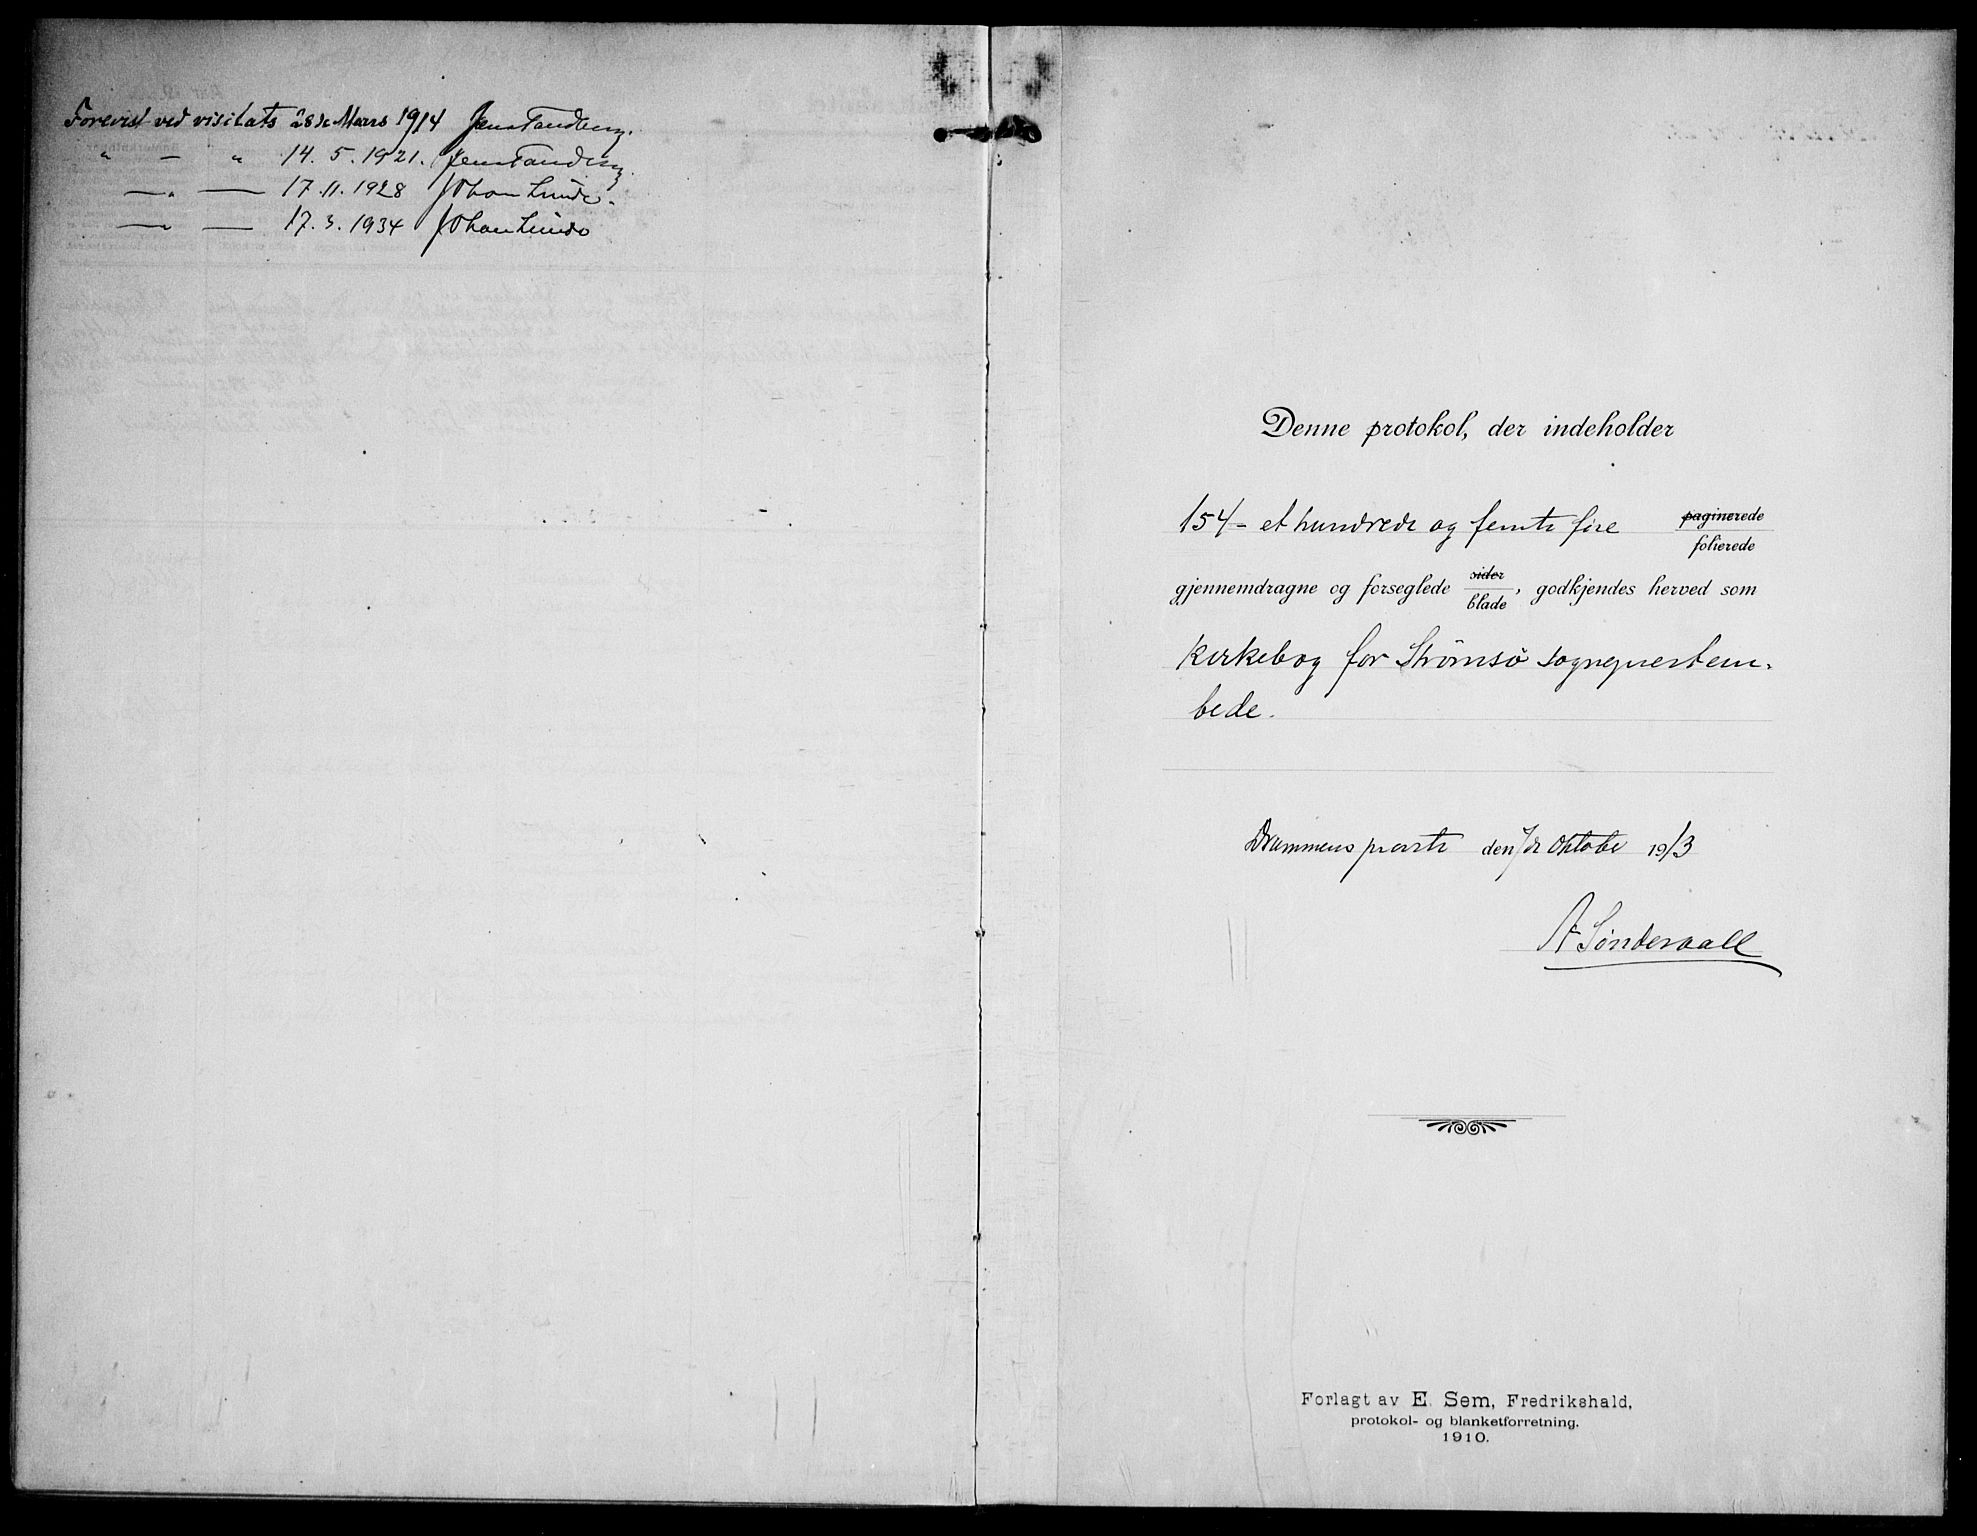 Forevist ved visitats 28de Mars 1914 Jens Tandberg.
" — " 14. 5. 1921. Jens Tandberg.
—"— — 17. 11. 1928 Johan Lunde.
—"— — 17. 3. 1934 Johan Lunde
Denne protokol, der indeholder
154 - et hundrede og femti fire paginerede
folierede
gjennemdragne og forseglede sider
blade, godkjendes herved som
Kirkebog for Strømsø sogneprestem-
bede.
Drammens prosti den 7de Oktober 1913
A Sønderaall
Forlagt av E. Sem, Fredrikshald,
protokol- og blanketforretning.
1910.